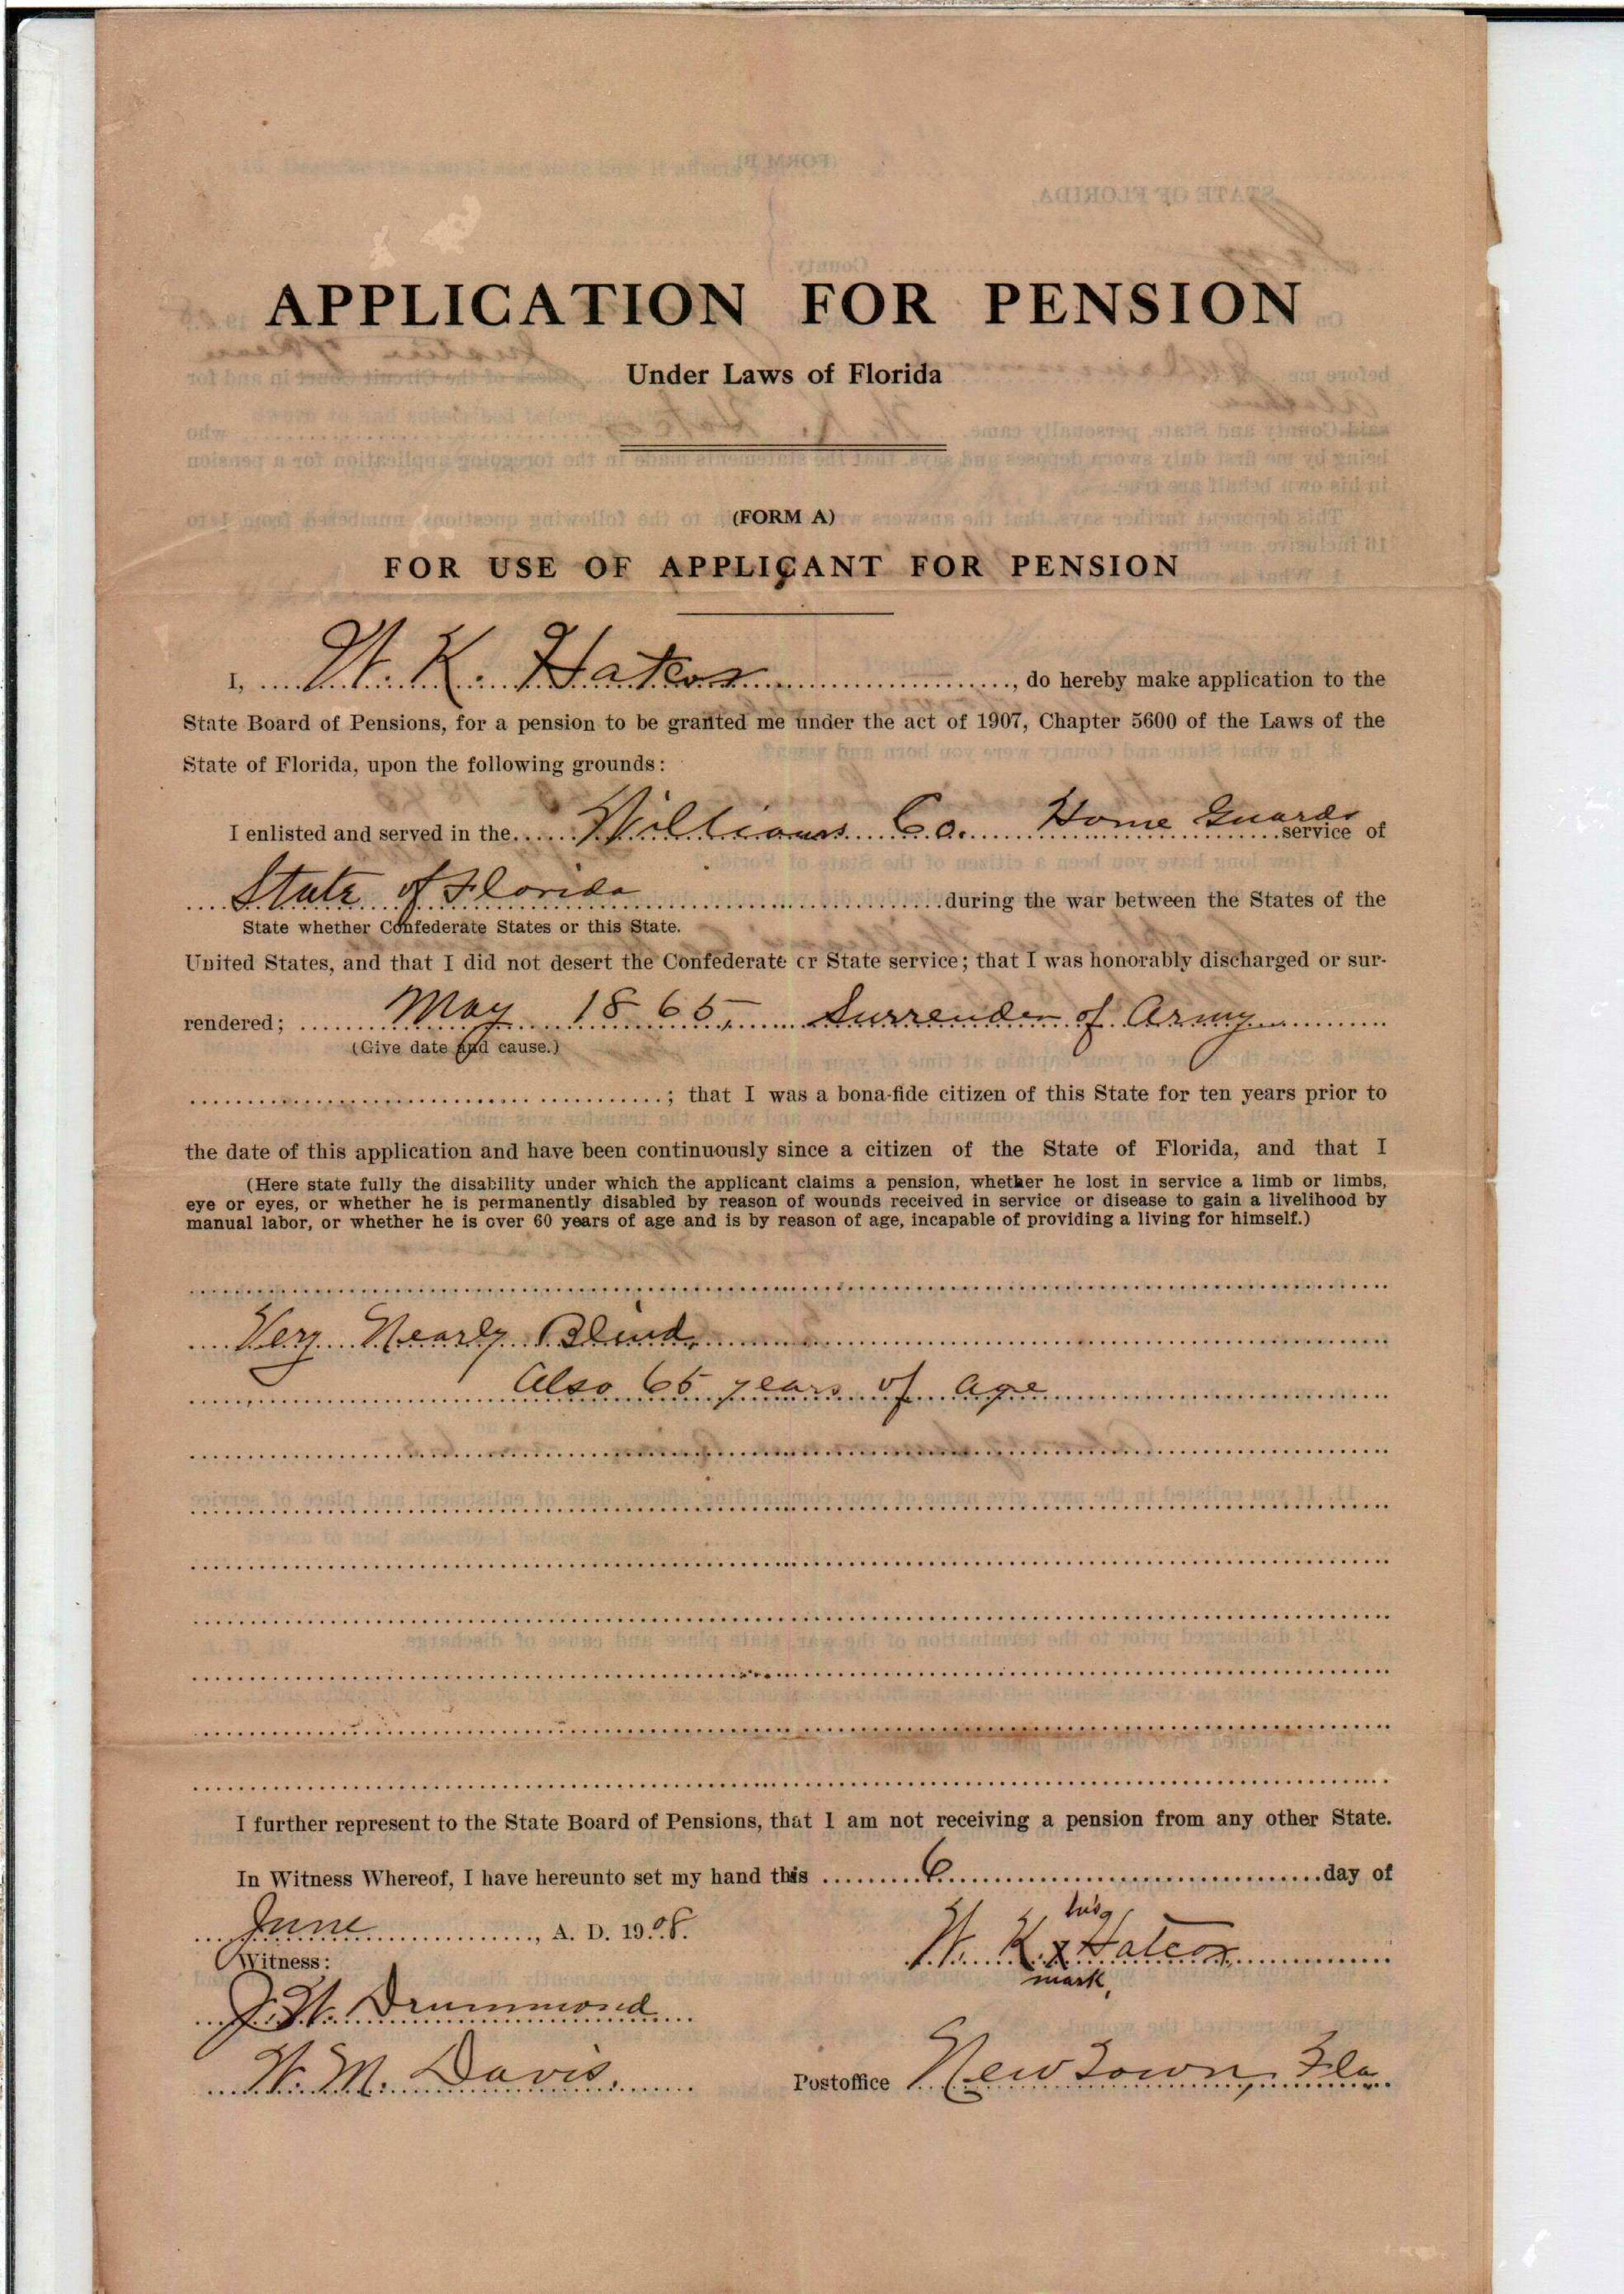 APPLICATION FOR PENSION
Under Laws of Florida
(FORM A)
FOR USE OF APPLICANT FOR PENSION
I, W. K. Hatcox, do hereby make application to the
State Board of Pensions, for a pension to be granted me under the act of 1907, Chapter 5600 of the Laws of the
State of Florida, upon the following grounds:
I enlisted and served in the Williams Co. Home Guards service of
State of Florida during the war between the States of the
State whether Confederate States or this State.
United States, and that I did not desert the Confederate or State service; that I was honorably discharged or sur-
rendered; May 1865, Surrender of Army
(Give date and cause.)
; that I was a bona-fide citizen of this State for ten years prior to
the date of this application and have been continuously since a citizen of the State of Florida, and that I
(Here state fully the disability under which the applicant claims a pension, whether he lost in service a limb or limbs,
eye or eyes, or whether he is permanently disabled by reason of wounds received in service or disease to gain a livelihood by
manual labor, or whether he is over 60 years of age and is by reason of age, incapable of providing a living for himself.)
Very Nearly Blind,
Also 65 years of age
I further represent to the State Board of Pensions, that I am not receiving a pension from any other State.
In Witness Whereof, I have hereunto set my hand this 6 day of
June, A. D. 1908.
his
W. K. x Hatcox
mark,
Witness:
J. W. Drummond
W. M. Davis.
Postoffice New Town, Fla